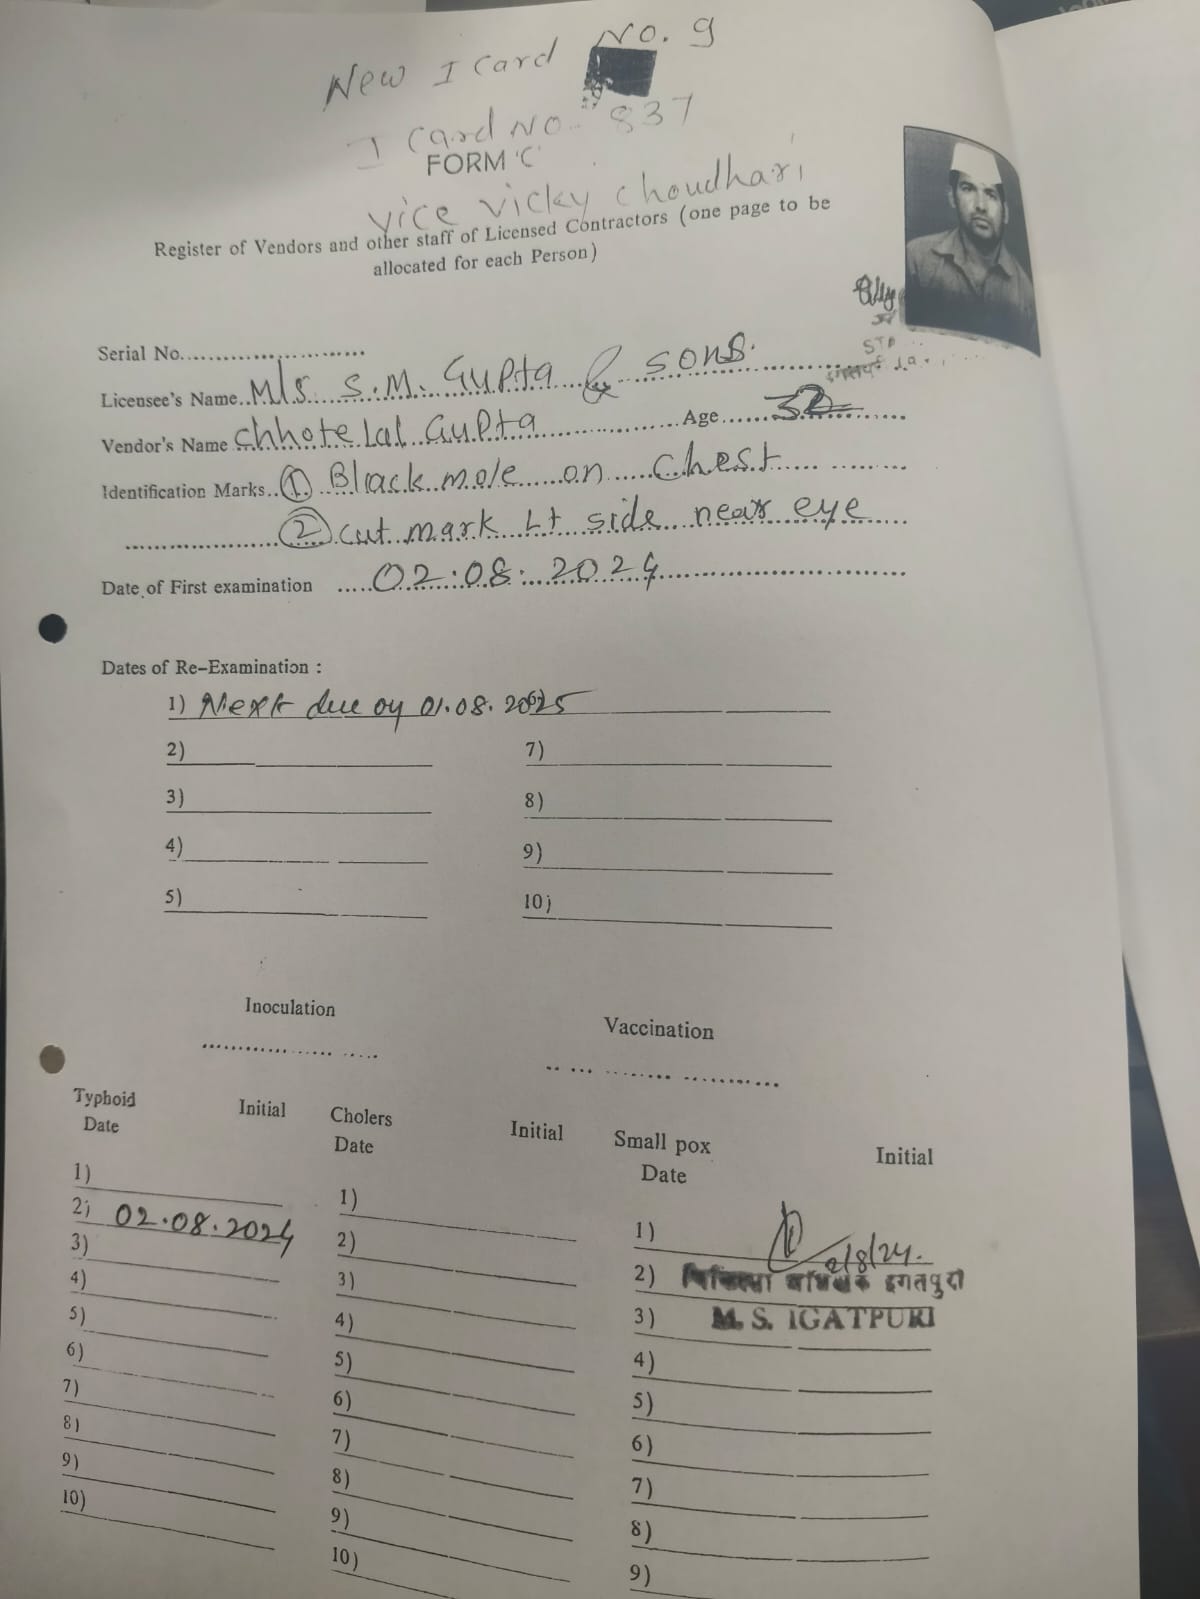 New I Card No. 9
I Card No. 837
FORM 'C'
vice vicky choudhari
Register of Vendors and other staff of Licensed Contractors (one page to be
allocated for each Person)
Serial No..............................
Licensee's Name..M/s. S.M. Gupta & sons.
Vendor's Name Chhote Lal Gupta Age......32
Identification Marks..① Black mole on Chest
② cut mark Lt side near eye
Date of First examination .....02.08.2024
Dates of Re-Examination :
1) Next due on 01.08.2025
2) 7)
3) 8)
4) 9)
5) 10)
Inoculation
Vaccination
Typhoid Initial Cholers Initial Small pox Initial
Date Date Date
1) 1) 1) 2/8/24.
2) 02.08.2024 2) 2) इगतपुरी
3) 3) 3) M. S. IGATPURI
4) 4) 4)
5) 5) 5)
6) 6) 6)
7) 7) 7)
8) 8) 8)
9) 9) 9)
10) 10)